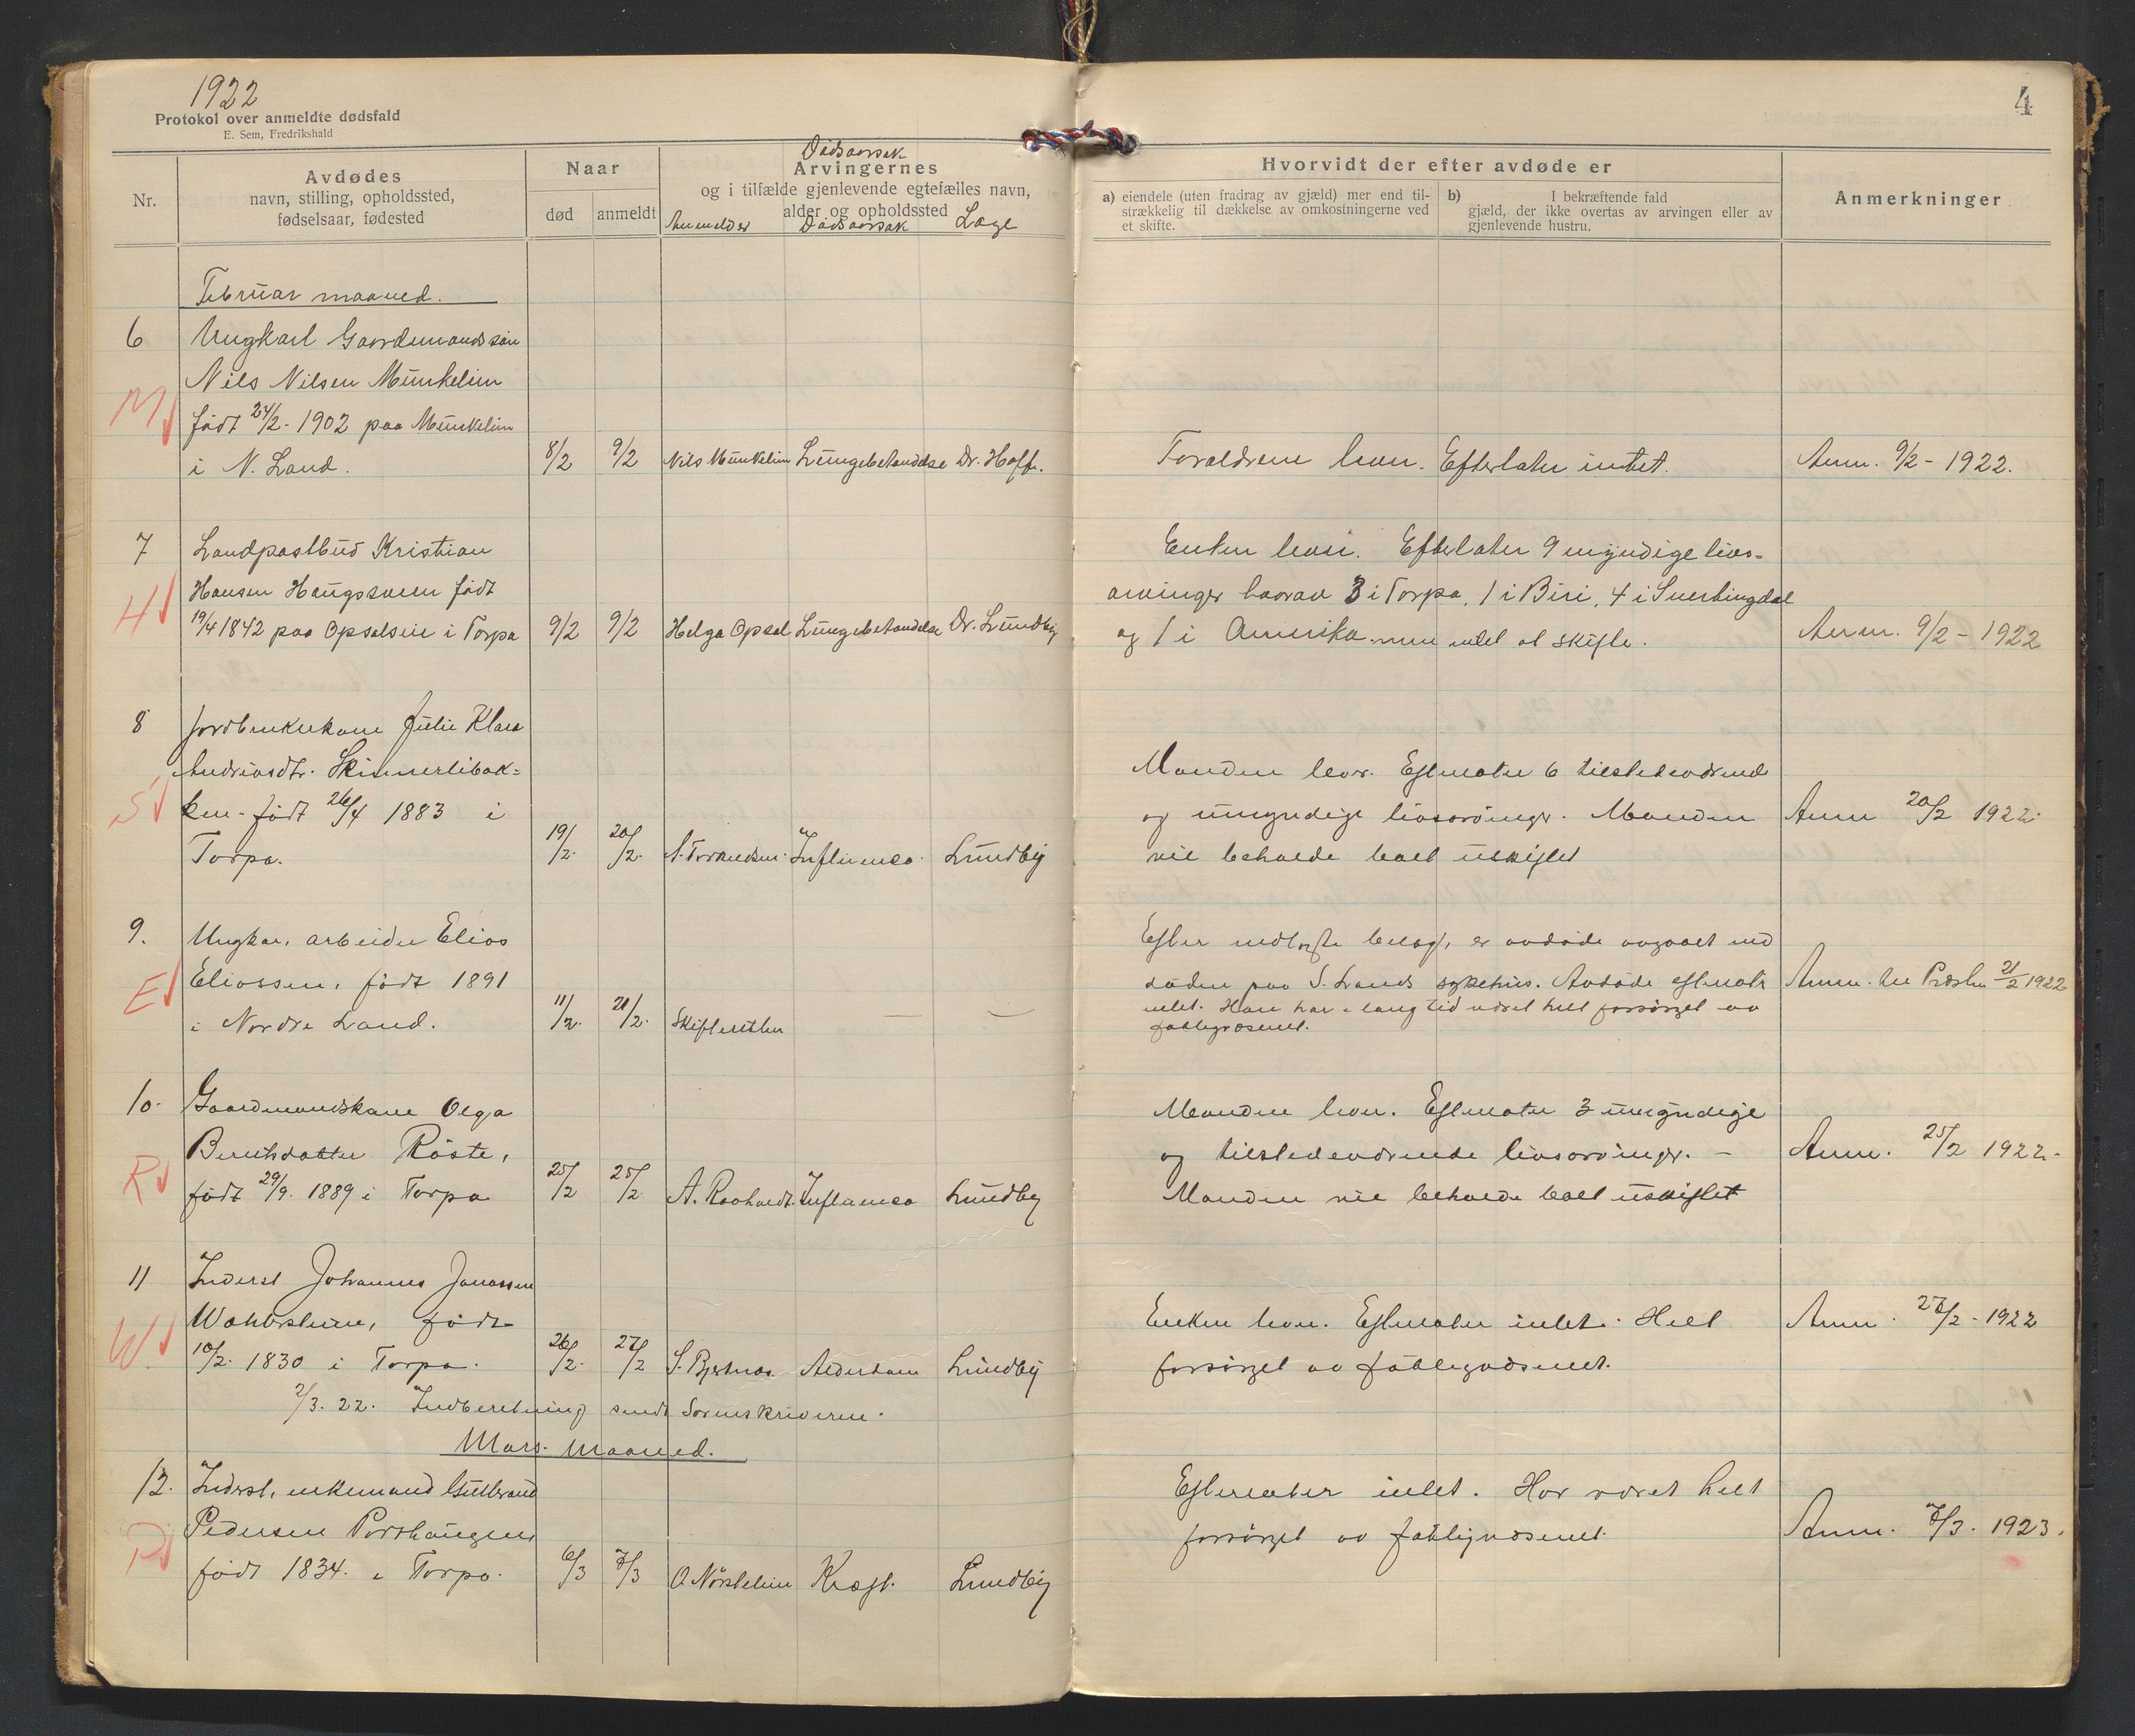 1922
Protokol over anmeldte dødsfald
E. Sem, Fredrikshald
4
Nr.
Avdødes
navn, stilling, opholdssted,
fødselsaar, fødested
Naar
død
anmeldt
Dødsaarsak
Arvingernes
og i tilfælde gjenlevende egtefælles navn,
alder og opholdssted
Anmelder Dødsaarsak Læge
Hvorvidt der efter avdøde er
a) eiendele (uten fradrag av gjæld) mer end til-
strækkelig til dækkelse av omkostningerne ved
et skifte.
b) I bekræftende fald
gjæld, der ikke overtas av arvingen eller av
gjenlevende hustru.
Anmerkninger
Februar maaned.
6 Ungkarl Gaardmandssøn
Nils Nilsen Munkelien
M født 24/2 - 1902 paa Munkelien
i N. Land. 8/2 9/2 Nils Munkelien Lungebetændelse Dr. Hoff. Forældrene lever. Efterlater intet. Anm. 9/2 - 1922.
7 Landpostbud Kristian Enken lever. Efterlater 9 myndige livs-
H Hansen Haugsveen født arvinger hvorav 3 i Torpa, 1 i Biri, 4 i Snertingdal
19/4 1842 paa Opsalseie i Torpa 9/2 9/2 Helga Opsal Lungebetændelse Dr. Lundby og 1 i Amerika. skifte. Anm. 9/2 - 1922
8 Jordbrukerkone Julie Klara
Andreasdtr. Skinnerlibak- Manden lever. Efterlater 6 tilstedeværende
S ken - født 26/4 1883 i og umyndige livsarvinger. Manden Anm 20/2 1922.
Torpa. 19/2. 20/2. Influensa. Lundby vil beholde boet uskiftet
9. Ungkar, arbeider Elias Efter avdøde avgaaet ved
E Eliassen, født 1891 døden paa S. Lands sykehus. Avdøde efterlater Anm. 21/2 1922
i Nordre Land. 11/2. 21/2. Skifteretten — — intet. Han har i lang tid været helt forsørget av
fattigvæsenet.
10. Gaardmandskone Olga Manden lever. Efterlater 3 umyndige
Berntsdatter Röste, og tilstedeværende livsarvinger. - Anm. 25/2 1922.
R født 29/9. 1889 i Torpa 25/2 25/2 Influensa Lundby Manden vil beholde boet uskiftet
11 Inderst Johannes Jonassen
W. født Enken lever. Efterlater intet. Helt Anm. 27/2 - 1922
10/2. 1830 i Torpa. 26/2. 27/2 Alderdom Lundby forsørget av fattigvæsenet.
2/3. 22. Indberetning sendt Sorenskriveren.
Mars. Maaned.
12. Inderst, enkemand Gulbrand Efterlater intet. Har været helt
P Pedersen Porshaugen, forsørget av fattigvæsenet. Anm. 7/3. 1923.
født 1834. i Torpa. 6/3 7/3 O Nørstelien Kræft. Lundby